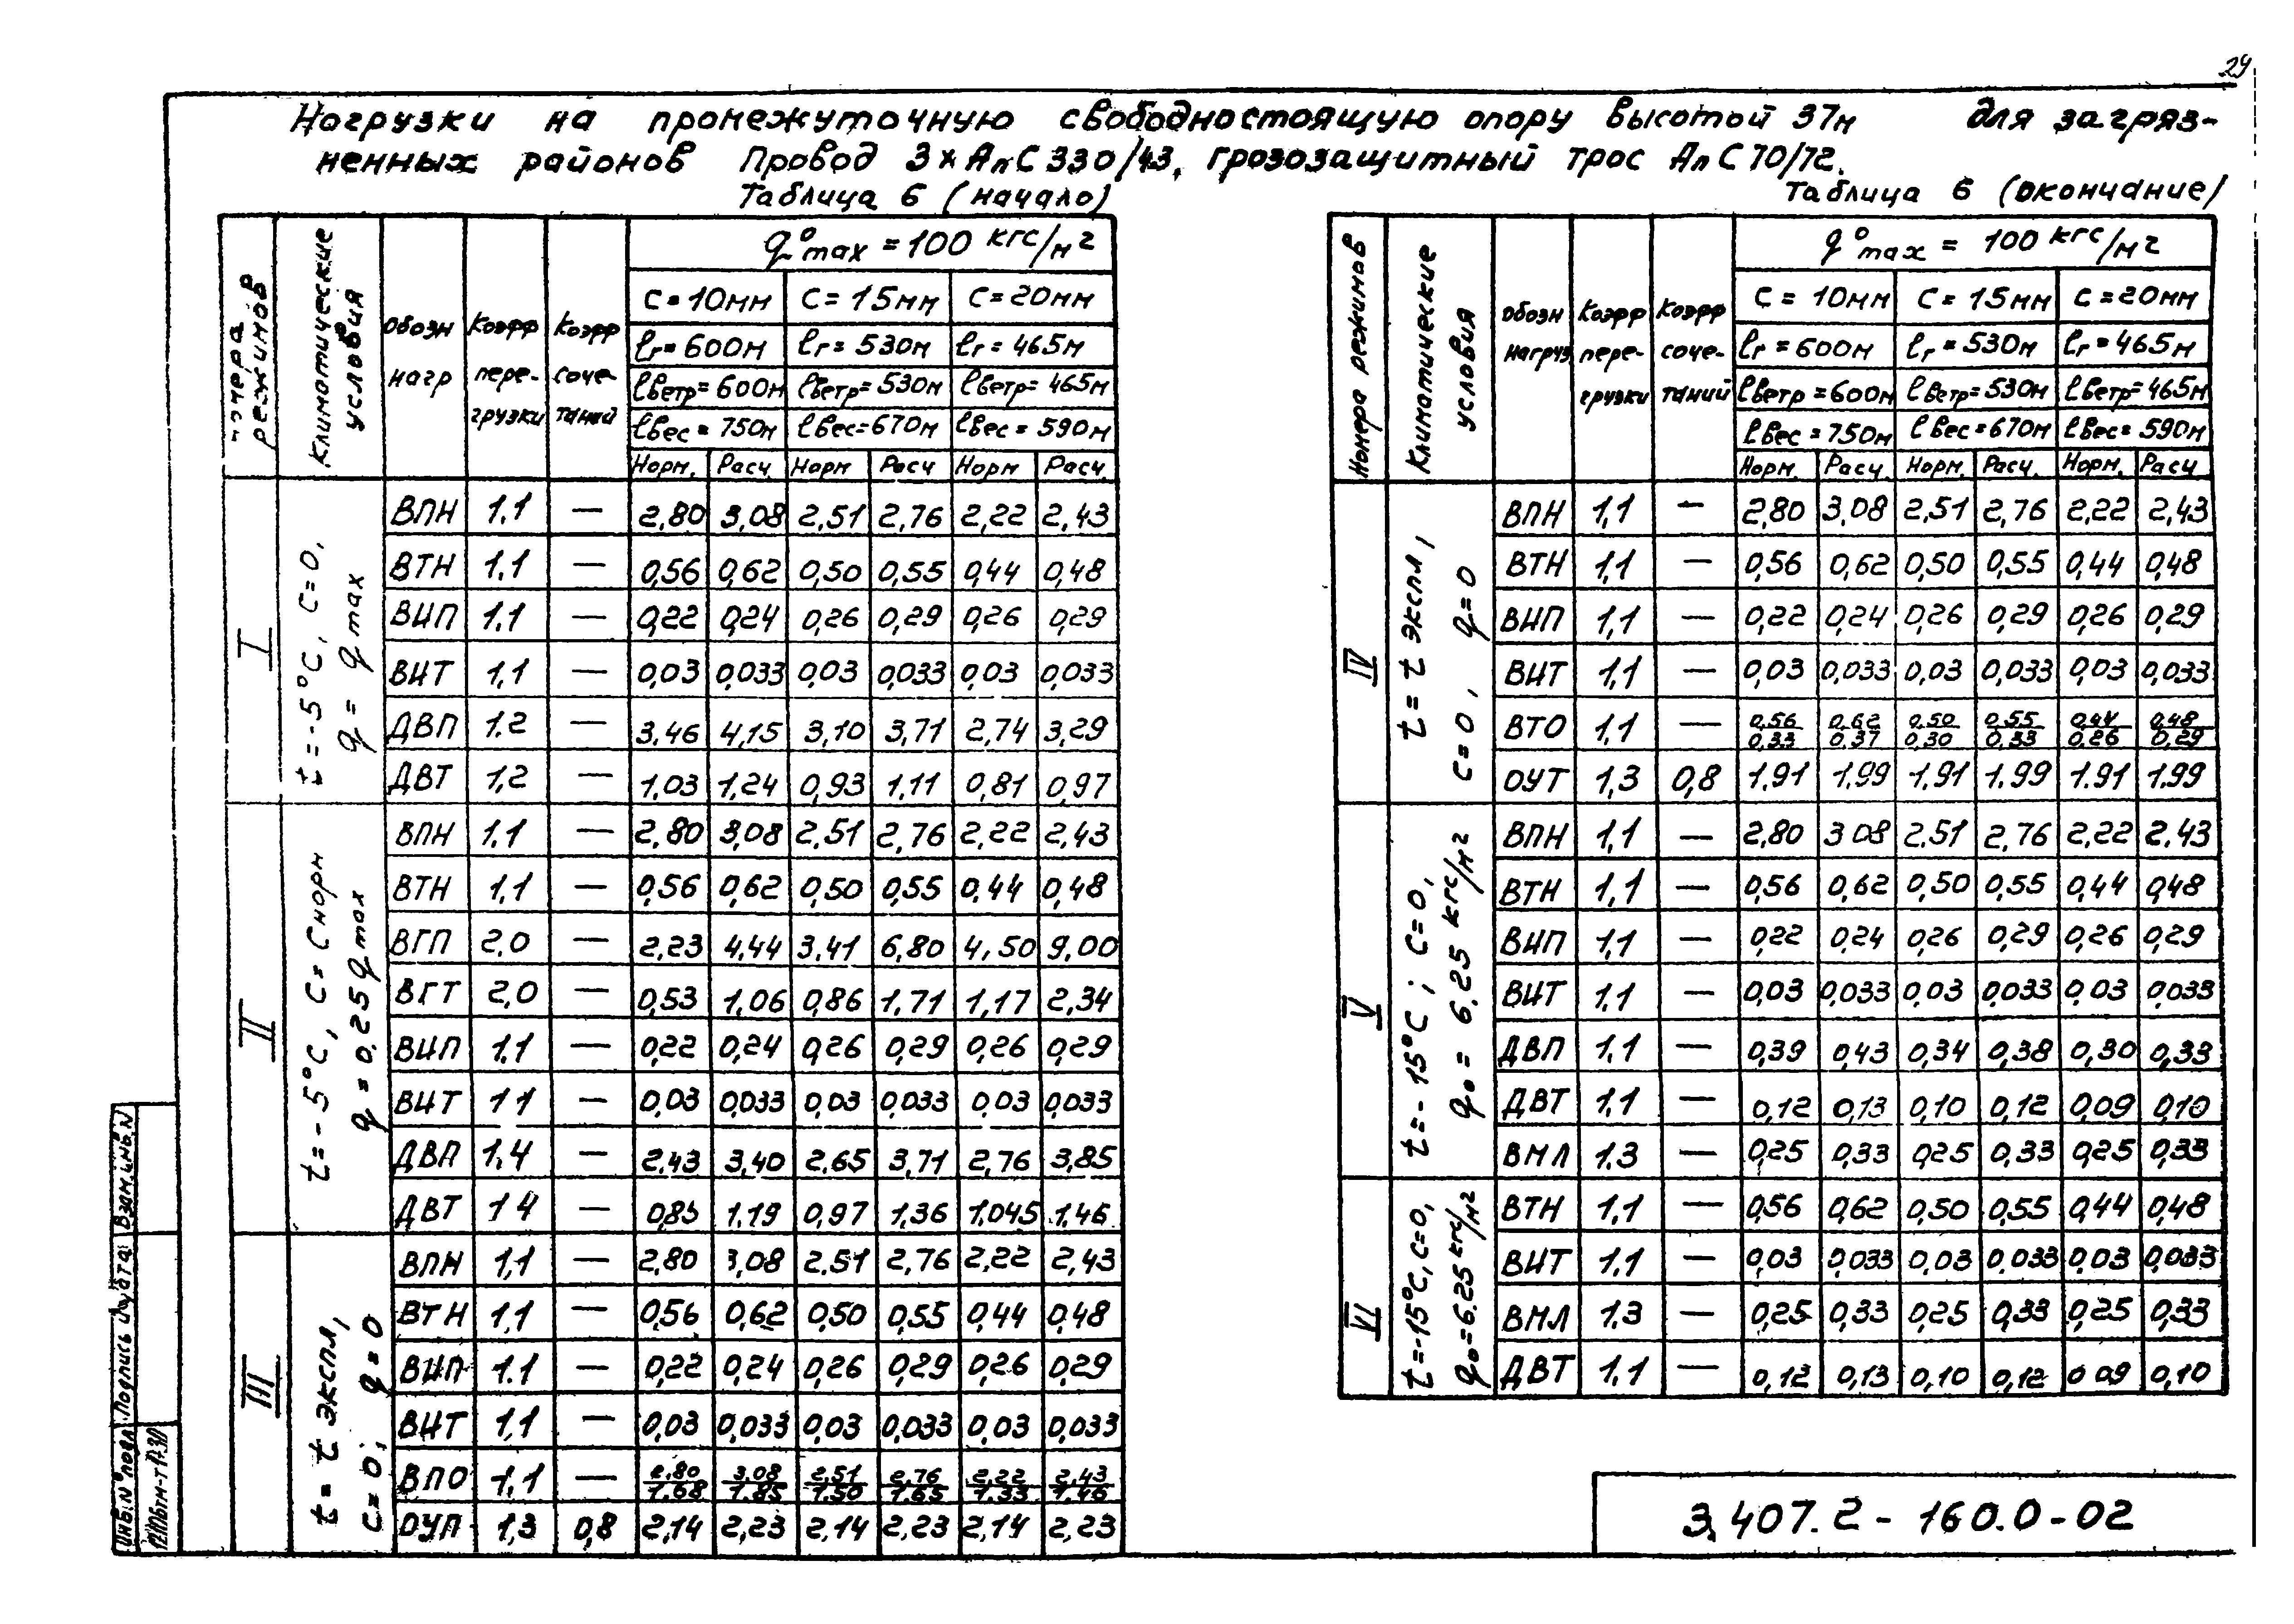 29
Нагрузки на промежуточную свободностоящую опору высотой 37м для загряз-
ненных районов Провод 3×АпС330/43, грозозащитный трос АпС70/72.
Таблица 6 (начало)
Номера режимов | Климатические условия | Обозн нагр | Коэфф пере- грузки | Коэфф соче- таний | q⁰max = 100 кгс/м²
С=10мм | С=15мм | С=20мм
ℓг=600м | ℓг=530м | ℓг=465м
ℓветр=600м | ℓветр=530м | ℓветр=465м
ℓвес=750м | ℓвес=670м | ℓвес=590м
Норм. | Расч. | Норм | Расч | Норм | Расч.
I
t=-5°С, С=0,
q = q max
ВПН 1.1 — 2,80 3,08 2,51 2,76 2,22 2,43
ВТН 1.1 — 0,56 0,62 0,50 0,55 0,44 0,48
ВИП 1.1 — 0,22 0,24 0,26 0,29 0,26 0,29
ВИТ 1.1 — 0,03 0,033 0,03 0,033 0,03 0,033
ДВП 1.2 — 3,46 4,15 3,10 3,71 2,74 3,29
ДВТ 1,2 — 1.03 1,24 0,93 1,11 0,81 0,97
II
t=-5°С, С=Снорм
q=0,25 q max
ВПН 1.1 — 2,80 3,08 2,51 2,76 2,22 2,43
ВТН 1,1 — 0,56 0,62 0,50 0,55 0,44 0,48
ВГП 2,0 — 2,23 4,44 3,41 6,80 4,50 9,00
ВГТ 2,0 — 0,53 1,06 0,86 1,71 1,17 2,34
ВИП 1.1 — 0,22 0,24 0,26 0,29 0,26 0,29
ВИТ 1 1 — 0,03 0,033 0,03 0,033 0,03 0,033
ДВП 1,4 — 2.43 3,40 2,65 3,71 2,76 3,85
ДВТ 1 4 — 0,85 1.19 0,97 1,36 1,045 1.46
III
t = t экспл,
с=0; q=0
ВПН 1,1 — 2,80 3,08 2.51 2,76 2,22 2,43
ВТН 1,1 — 0,56 0,62 0,50 0,55 0,44 0,48
ВИП 1.1 — 0,22 0,24 0,26 0,29 0,26 0,29
ВИТ 1,1 — 0,03 0,033 0,03 0,033 0,03 0,033
ВПО 1,1 — 2,80/1.68 3,08/1.85 2,51/1.50 2,76/1.65 2,22/1.33 2,43/1.46
ОУП 1,3 0,8 2,14 2,23 2,14 2,23 2,14 2,23
Таблица 6 (окончание)
Номера режимов | Климатические условия | Обозн нагруз | Коэфф пере- грузки | Коэфф соче- таний | q⁰max = 100 кгс/м²
С=10мм | С=15мм | С=20мм
ℓг=600м | ℓг=530м | ℓг=465м
ℓветр=600м | ℓветр=530м | ℓветр=465м
ℓвес=750м | ℓвес=670м | ℓвес=590м
Норм. | Расч. | Норм. | Расч. | Норм. | Расч
IV
t = t экспл,
с=0, q=0
ВПН 1,1 — 2,80 3,08 2,51 2,76 2,22 2,43
ВТН 1,1 — 0,56 0,62 0,50 0,55 0,44 0,48
ВИП 1,1 — 0,22 0,24 0,26 0,29 0,26 0,29
ВИТ 1,1 — 0,03 0,033 0,03 0,033 0,03 0,033
ВТО 1,1 — 0,56/0,33 0,62/0,37 0,50/0,30 0,55/0,33 0,44/0,26 0,48/0,29
ОУТ 1,3 0,8 1.91 1.99 1.91 1.99 1.91 1.99
V
t=-15°С; С=0,
q₀=6,25 кгс/м²
ВПН 1,1 — 2,80 3 08 2.51 2,76 2,22 2.43
ВТН 1,1 — 0,56 0,62 0,50 0,55 0,44 0,48
ВИП 1,1 — 0,22 0,24 0,26 0,29 0,26 0,29
ВИТ 1,1 — 0,03 0,033 0,03 0,033 0,03 0,033
ДВП 1.1 — 0,39 0,43 0,34 0,38 0,30 0,33
ДВТ 1.1 — 0,12 0,13 0,10 0,12 0,09 0,10
ВМЛ 1.3 — 0,25 0,33 0,25 0,33 0,25 0,33
VI
t=-15°С, С=0,
q₀=6.25 кгс/м²
ВТН 1.1 — 0,56 0,62 0,50 0,55 0,44 0,48
ВИТ 1.1 — 0,03 0,033 0,03 0,033 0,03 0,033
ВМЛ 1.3 — 0,25 0,33 0,25 0,33 0,25 0,33
ДВТ 1.1 — 0,12 0,13 0,10 0,12 0 09 0,10
Инв.№ подл. Подпись и дата Взам.инв.№
3.407.2-160.0-02